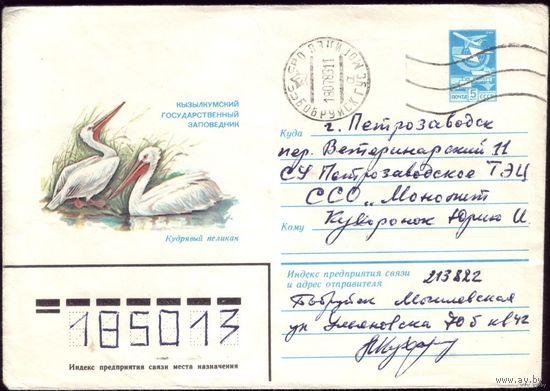 КЫЗЫЛКУМСКИЙ
ГОСУДАРСТВЕННЫЙ
ЗАПОВЕДНИК
Кудрявый пеликан
БОБРУЙСК
18078311
ПОЧТА 5 СССР
Куда г. Петрозаводск
пер. Ветеринарский 11
СУ Петрозаводское ТЭЦ
ССО „Монолит
Кому Юрию И.
Индекс предприятия связи
и адрес отправителя 213822
Могилевская
ул 70б кв 42
185013
Индекс предприятия связи места назначения
www.ay.by